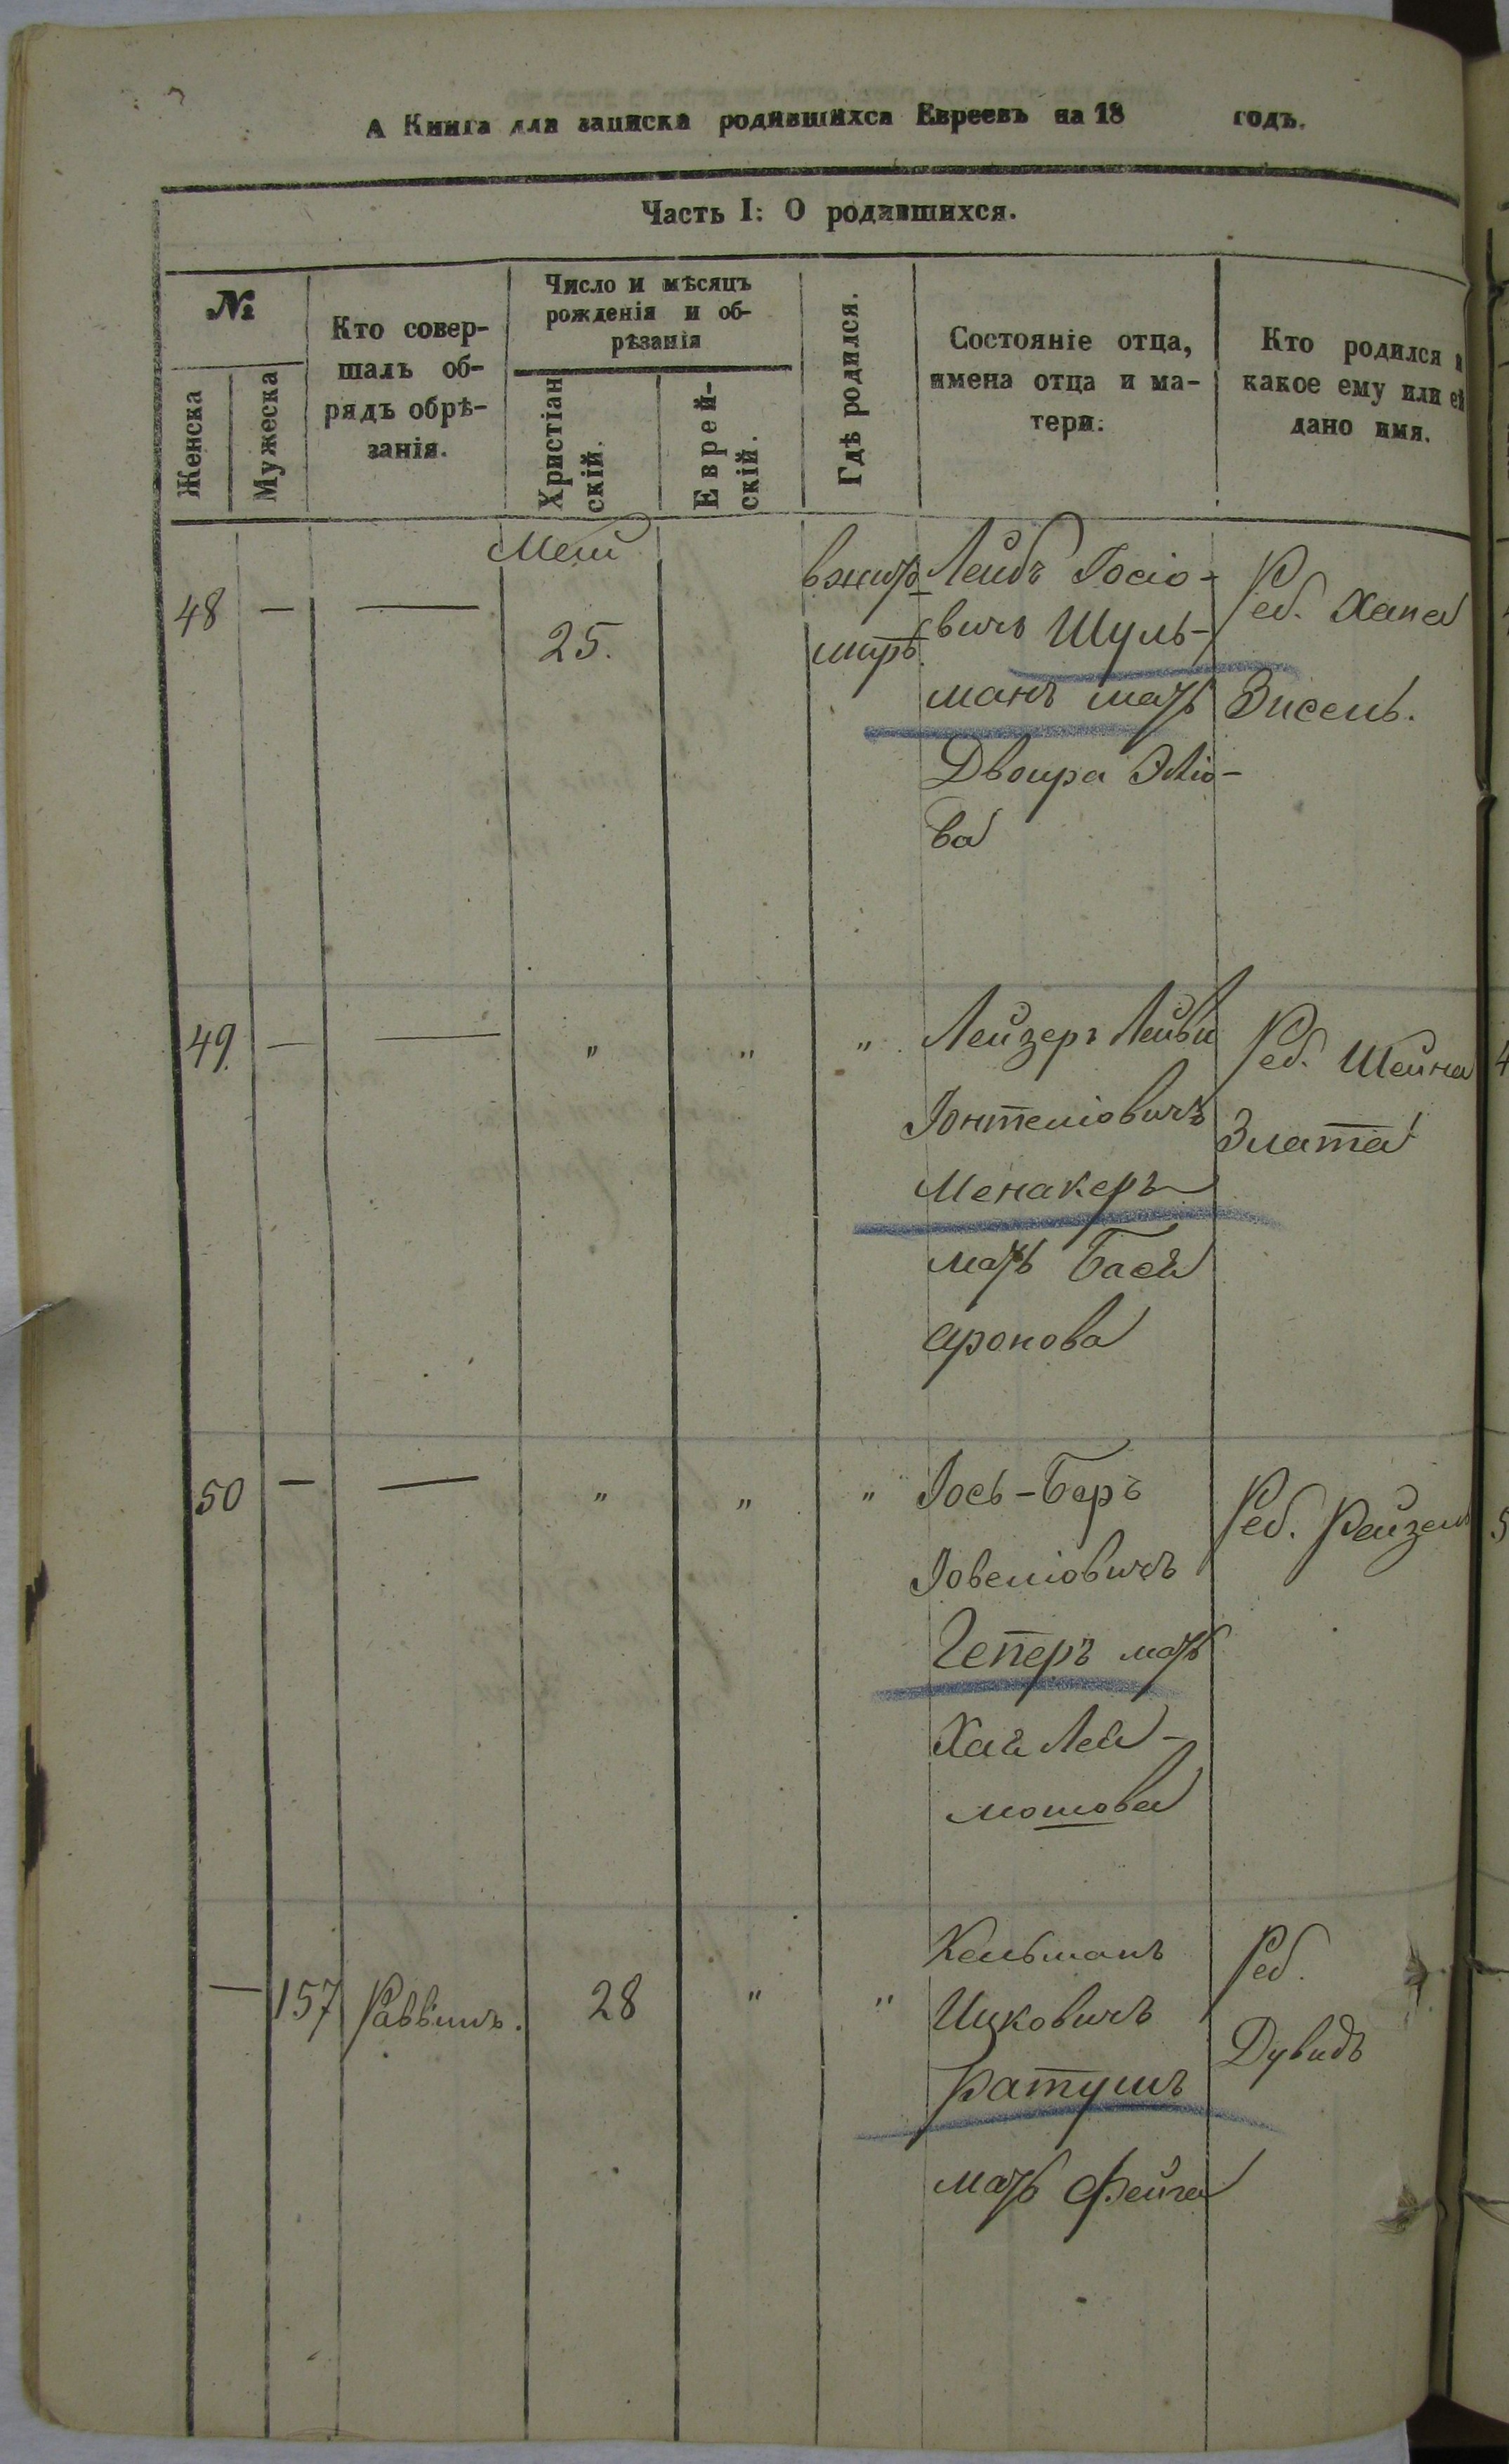 А Книга для записки родившихся Евреевъ на 18 годъ.
Часть I: О родившихся.
№
Женска
Мужеска
Кто совер-
шалъ об-
рядъ обрѣ-
занія.
Число и мѣсяцъ
рожденія и об-
рѣзанія
Христіан
скій.
Еврей-
скій.
Гдѣ родился.
Состояніе отца,
имена отца и ма-
тери.
Кто родился и
какое ему или ей
дано имя.
Маій
48 — — 25.
Лейбъ Іосіо-
вичъ Шуль-
манъ мать
Двойра Эліо-
ва
Реб. Хана
Зисель.
49. — — " " "
Лейзеръ Лейви
Іонтеліовичъ
Менакеръ
мать Бася
Аронова
Реб. Шейна
Злата
50 — — " " "
Іось-Беръ
Іовеліовичъ
Геперъ мать
Хая Лея
мошова
Реб. Рейзель
— 157 Раввинъ. 28 " "
Кельманъ
Ицковичъ
Ратушъ
мать Фейга
Реб.
Дувидъ